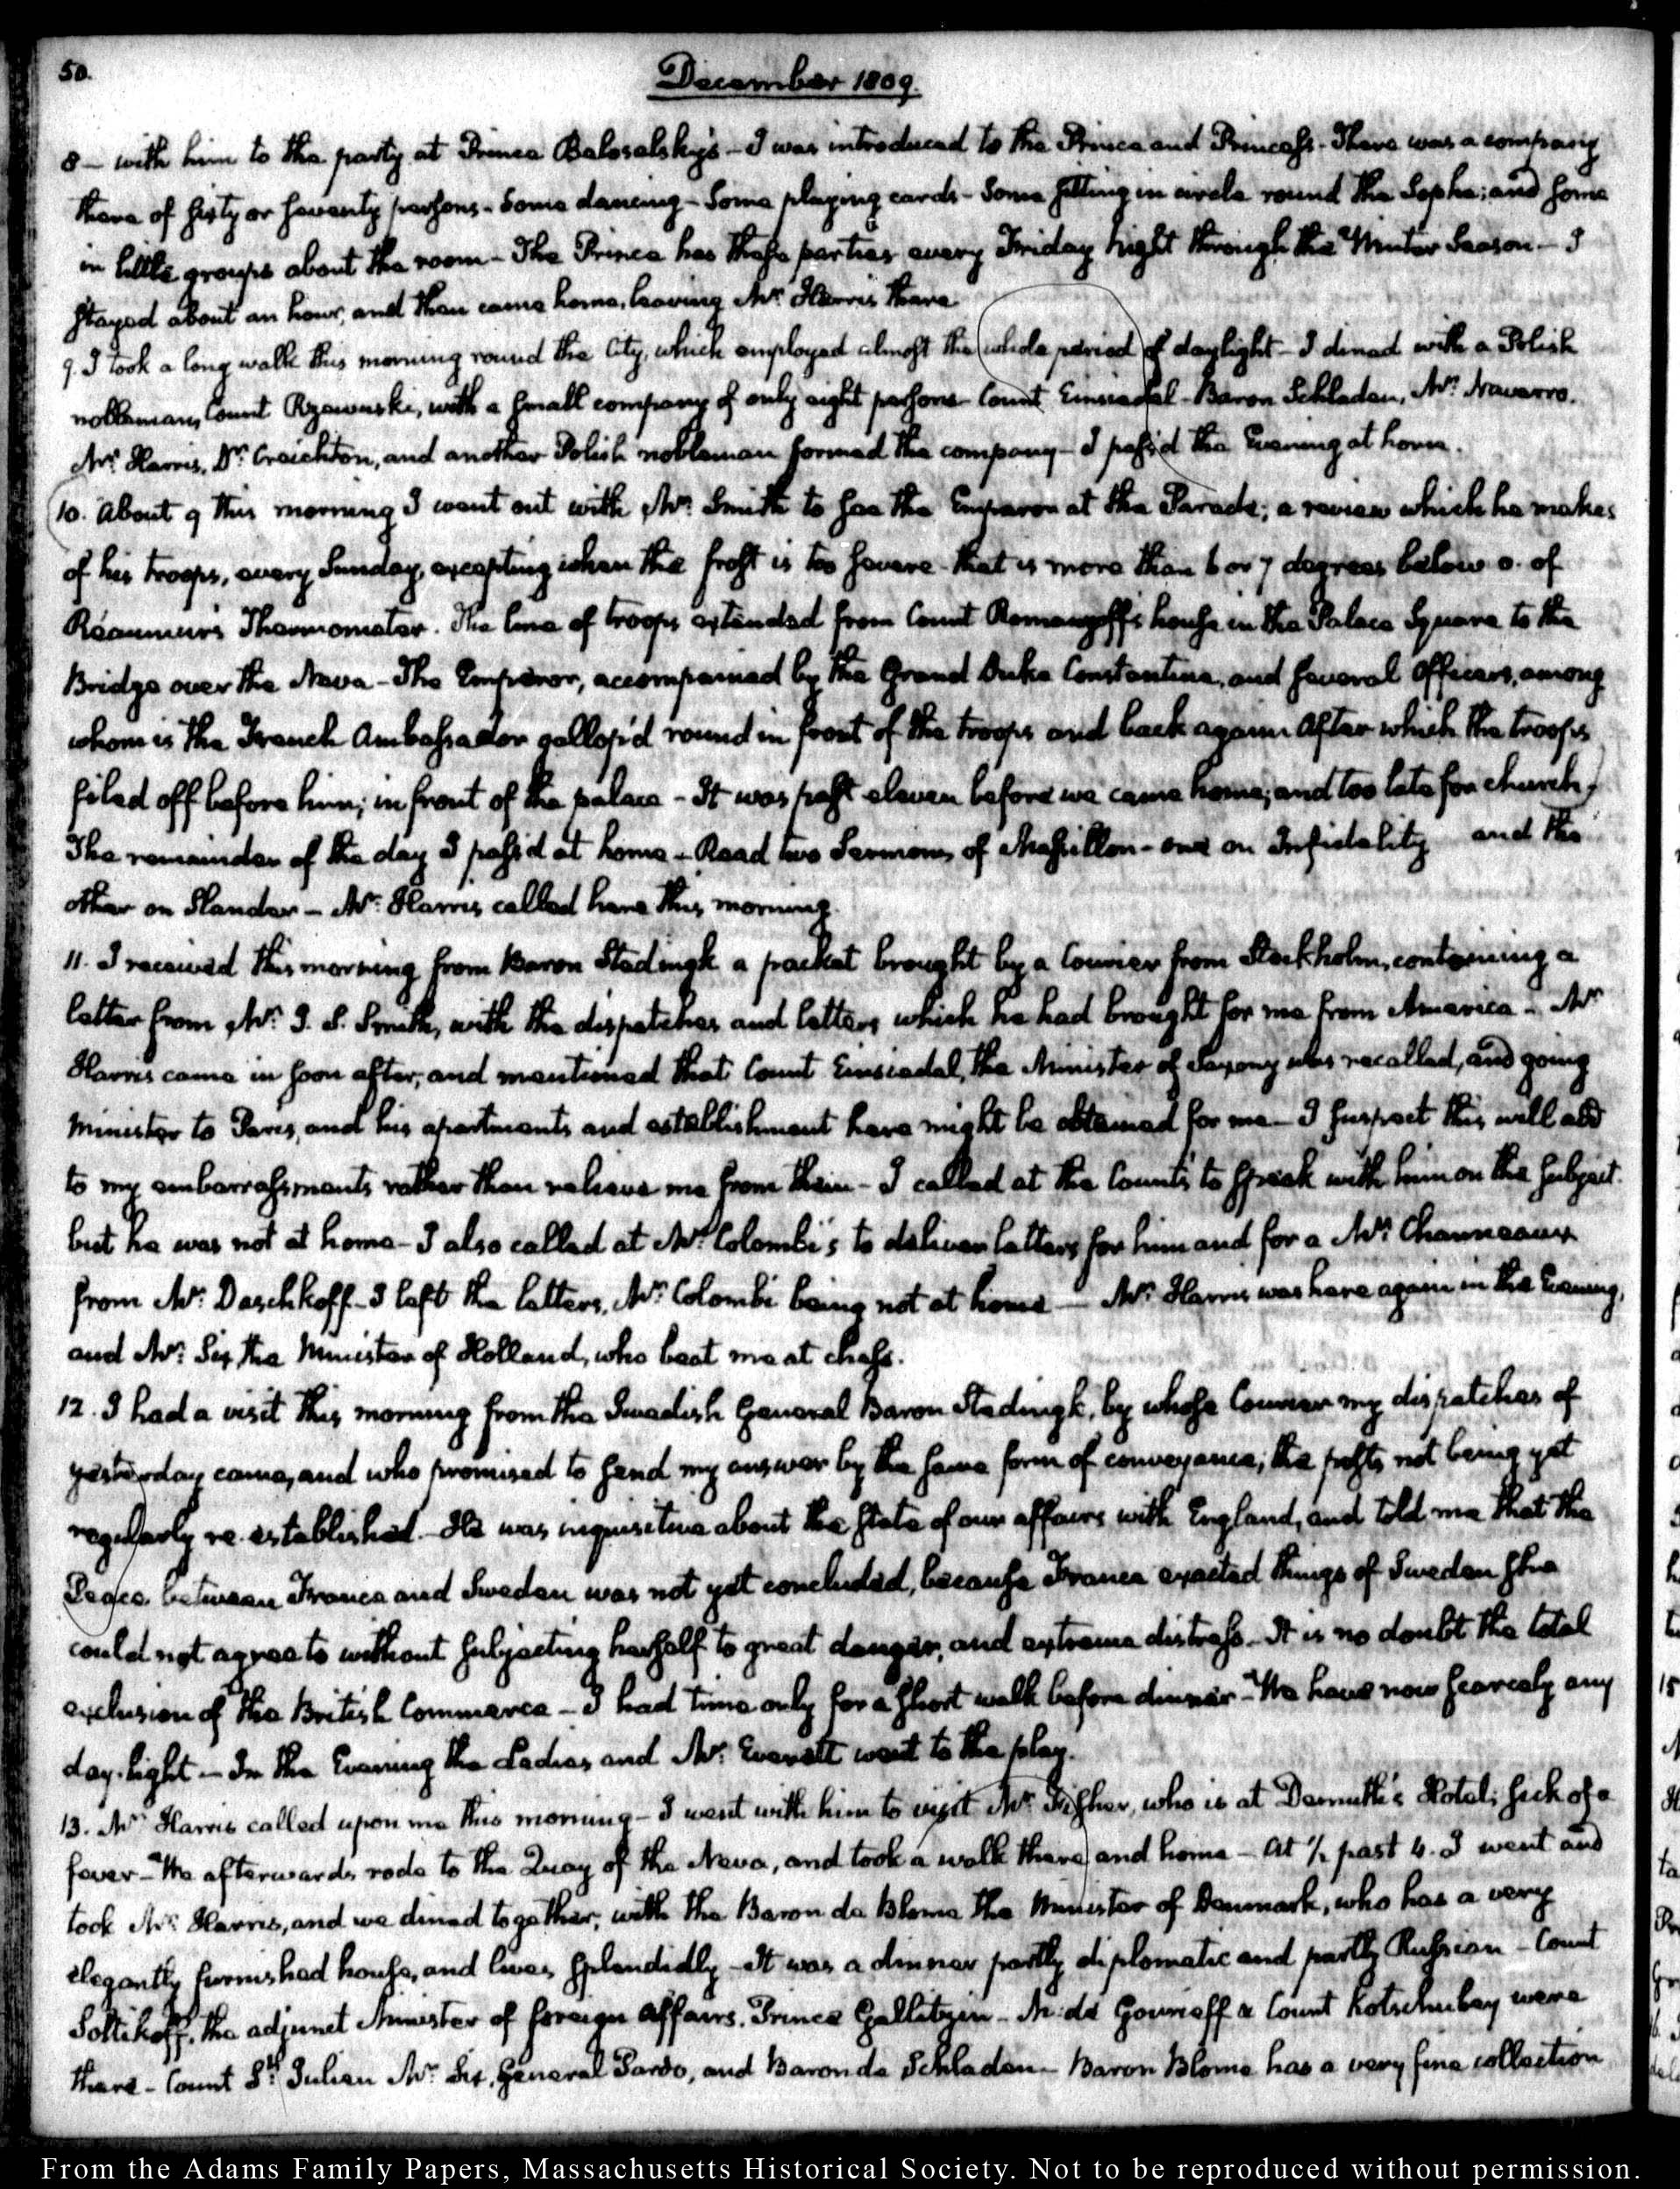 50.
December 1809.
8 – with him to the party at Prince Baloselsky's – I was introduced to the Prince and Princess – There was a company
there of sixty or seventy persons – Some dancing – Some playing cards – Some sitting in circle round the Sopha; and some
in little groups about the room – The Prince has these parties every Friday night through the Winter Season – I
stayed about an hour, and then came home, leaving Mr. Harris there
9. I took a long walk this morning round the City, which employed almost the whole period of daylight – I dined with a Polish
nobleman, Count Rzewuski, with a small company of only eight persons – Count Einsiedel – Baron Schladen, Mr. Navarro.
Mr. Harris, Dr. Creichton, and another Polish nobleman formed the company – I pass'd the Evening at home.
10. About 9 this morning I went out with Mr. Smith to see the Emperor at the Parade; a review which he makes
of his troops, every Sunday, excepting when the frost is too severe – that is more than 6 or 7 degrees below 0. of
Réaumeur's Thermometer. The line of troops extended from Count Romanzoff's house in the Palace Square to the
Bridge over the Neva – The Emperor, accompanied by the Grand Duke Constantine, and several Officers, among
whom is the French Ambassador gallop'd round in front of the troops and back again After which the troops
filed off before him; in front of the palace – It was past eleven before we came home; and too late for church.
The remainder of the day I pass'd at home – Read two Sermons of Massillon – one on Infidelity and the
other on Slander – Mr. Harris called here this morning.
11. I received this morning from Baron Stedingk a packet brought by a Courier from Stockholm, containing a
letter from Mr. J. S. Smith, with the dispatches and letters which he had brought for me from America – Mr
Harris came in soon after, and mentioned that Count Einsiedel, the Minister of Saxony was recalled, and going
Minister to Paris, and his apartments and establishment here might be obtained for me – I suspect this will add
to my embarrassments rather than relieve me from them – I called at the Count's to speak with him on the subject.
but he was not at home – I also called at Mr. Colombi's to deliver letters for him and for a Mr. Channeaux
from Mr. Daschkoff – I left the letters, Mr. Colombi being not at home – Mr. Harris was here again in the Evening,
and Mr. Six, the Minister of Holland, who beat me at chess.
12. I had a visit this morning from the Swedish General Baron Stedingk, by whose Courier my dispatches of
yesterday came, and who promised to send my answer by the same form of conveyance; the posts not being yet
regularly re-established. He was inquisitive about the state of our affairs with England, and told me that the
Peace between France and Sweden was not yet concluded, because France exacted things of Sweden she
could not agree to without subjecting herself to great danger, and extreme distress – It is no doubt the total
exclusion of the British Commerce – I had time only for a short walk before dinner – We have now scarcely any
day-light – In the Evening the Ladies and Mr. Everett went to the play.
13. Mr. Harris called upon me this morning – I went with him to visit Mr. Fisher, who is at Demuth's Hotel; sick of a
fever – We afterwards rode to the Quay of the Neva, and took a walk there and home – At ½ past 4. I went and
took Mr. Harris, and we dined together, with the Baron de Blome the Minister of Denmark, who has a very
elegantly furnished house, and lives splendidly – It was a dinner partly diplomatic and partly Russian – Count
Soltikoff, the adjunct Minister of foreign Affairs. Prince Gallitzin – M. de Gourieff & Count Kotschubey were
there – Count St. Julien Mr. Six, General Pardo, and Baron de Schladen – Baron Blome has a very fine collection
From the Adams Family Papers, Massachusetts Historical Society. Not to be reproduced without permission.